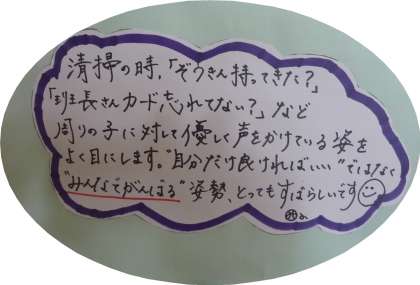 清掃の時、「ぞうきん持ってきた？」
「班長さんカード忘れてない？」など
周りの子に対して優しく声をかけている姿を
よく目にします。"自分だけ良ければいい"ではなく
"みんなでがんばる"姿勢、とってもすばらしいです